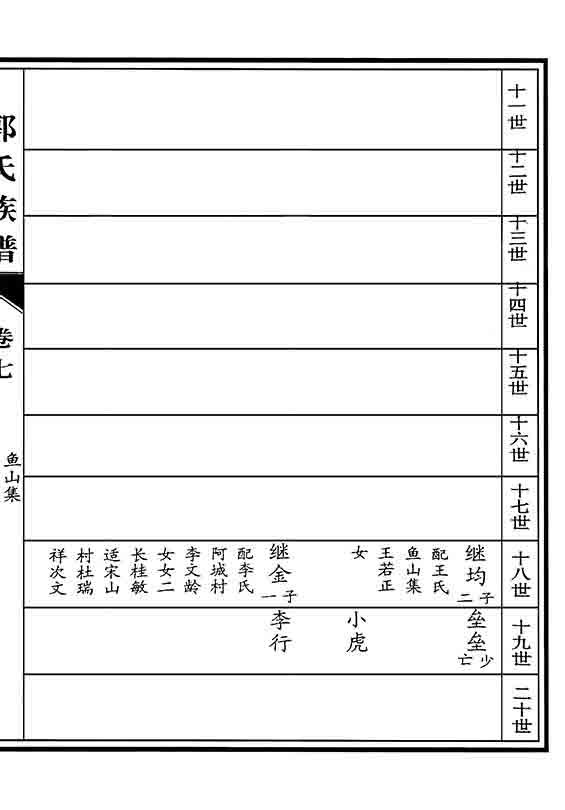 十一世
十二世
十三世
十四世
十五世
十六世
十七世
十八世
继均
子二
配王氏
鱼山集
王若正
女
继金
子一
配李氏
阿城村
李文龄
女女二
长桂敏
适宋山
村杜瑞
祥次文
十九世
垒垒
少亡
小虎
李行
二十世
郭氏族谱
卷七
鱼山集